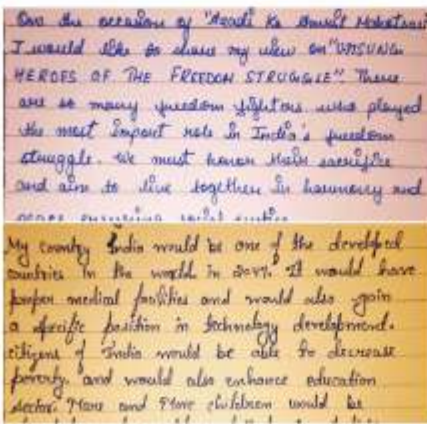 On the occasion of "Azadi Ka Amrit Mahotsav"
I would like to share my view on "UNSUNG
HEROES OF THE FREEDOM STRUGGLE". There
are so many freedom fighters who played
the most Import role in India's freedom
struggle. We must honor their sacrifice
and aim to live together in harmony and
peace ensuring social justice
My country India would be one of the developed
countries in the world in 2047. It would have
proper medical facilities and would also gain
a specific position in technology development.
citizens of India would be able to decrease
poverty. and would also enhance education
sector. More and More children would be